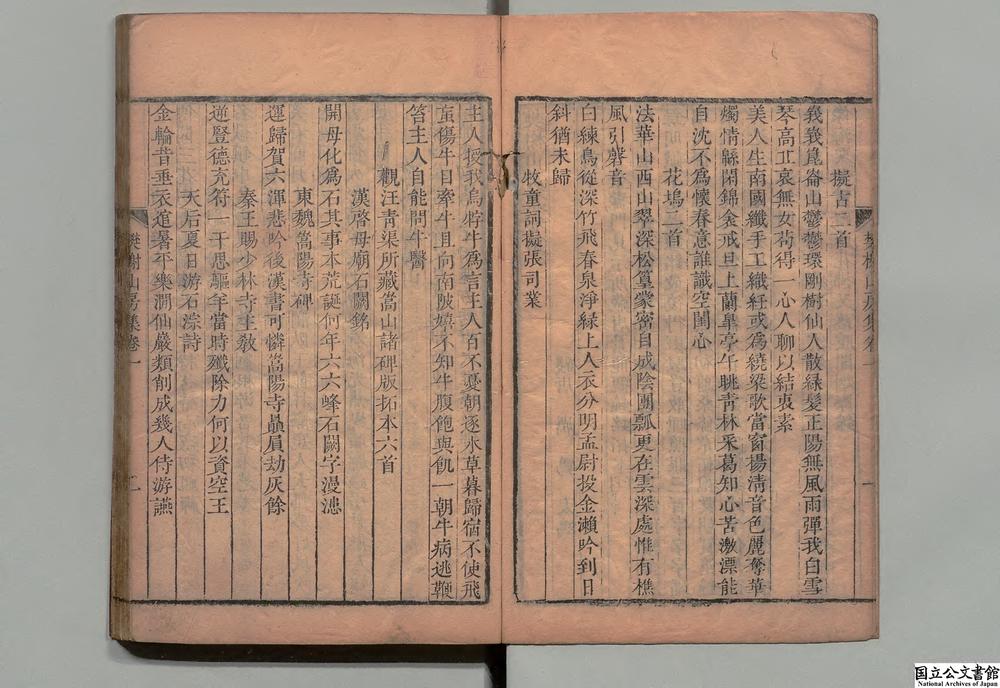 樊榭山房集卷一
一
擬古二首
峩峩崑崙山鬱鬱環剛樹仙人散綠髮正陽無風雨彈我白雪
琴高丘哀無女茍得一心人聊以結衷素
美人生南國纖手工織紝或爲繞梁歌當窗揚清音色麗奪華
燭情緜閑錦衾戒旦上蘭皋亭午眺青林采葛知心苦激漂能
自沈不爲懷春意誰識空閨心
花塢二首
法華山西山翠深松篁蒙密自成陰團瓢更在雲深處惟有樵
風引磬音
白練鳥從深竹飛春泉淨綠上人衣分明孟尉投金瀨吟到日
斜猶未歸
牧童詞擬張司業
主人授我烏牸牛爲言主人百不憂朝逐水草暮歸宿不使飛
䖟傷牛目牽牛且向南陂嬉不知牛腹飽與飢一朝牛病逃鞭
笞主人自能問牛醫
觀汪青渠所藏嵩山諸碑版拓本六首
漢啓母廟石闕銘
開母化爲石其事本荒誕何年六六峰石闕字漫漶
東魏嵩陽寺碑
運歸賀六渾悲吟後漢書可憐嵩陽寺贔屓劫灰餘
秦王賜少林寺主敎
逆豎德充符一千思驅年當時殲除力何以資空王
天后夏日游石淙詩
金輪昔垂衣逭暑平樂澗仙巖類削成幾人侍游讌
樊榭山房集卷一
二
国立公文書館
National Archives of Japan